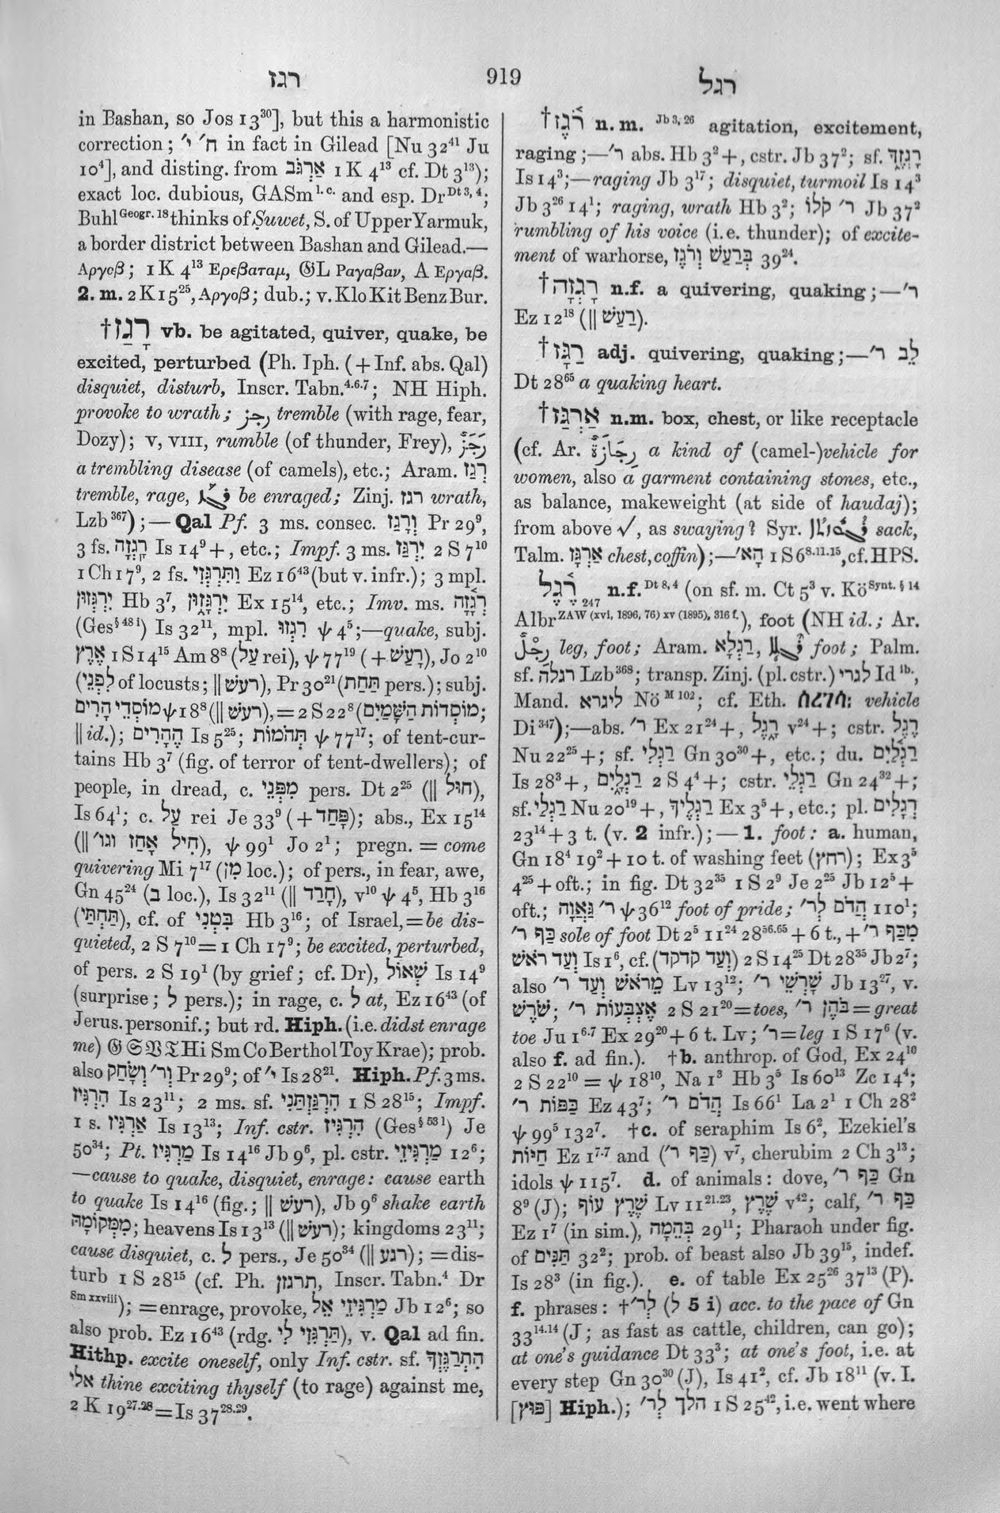 רגז
919
רגל
in Bashan, so Jos 13³⁰], but this a harmonistic
correction; ח׳ י׳ in fact in Gilead [Nu 32⁴¹ Ju
10⁴], and disting. from אַרְגֹּב 1 K 4¹³ cf. Dt 3¹³);
exact loc. dubious, GASm l.c. and esp. Dr Dt 3, 4;
Buhl Geogr. 18 thinks of Ṣuwet, S. of Upper Yarmuk,
a border district between Bashan and Gilead.—
Αργοβ; 1 K 4¹³ Ερεβαταμ, 𝔊L Ραγαβαν, A Εργαβ.
2. m. 2 K 15²⁵, Αργοβ; dub.; v. Klo Kit Benz Bur.
†רָגַז vb. be agitated, quiver, quake, be
excited, perturbed (Ph. Iph. (+ Inf. abs. Qal)
disquiet, disturb, Inscr. Tabn.⁴·⁶·⁷; NH Hiph.
provoke to wrath; رجز tremble (with rage, fear,
Dozy); V, VIII, rumble (of thunder, Frey), رَجَزٌ
a trembling disease (of camels), etc.; Aram. רְגַז
tremble, rage, be enraged; Zinj. רגז wrath,
Lzb³⁶⁷);—Qal Pf. 3 ms. consec. וְרָגַז Pr 29⁹,
3 fs. רָגְזָה Is 14⁹+, etc.; Impf. 3 ms. יִרְגַּז 2 S 7¹⁰
1 Ch 17⁹, 2 fs. וַתִּרְגְּזִי Ez 16⁴³ (but v. infr.); 3 mpl.
יִרְגְּזוּן Hb 3⁷, יִרְגָּזוּן Ex 15¹⁴, etc.; Imv. ms. רְגָזָה
(Ges§ 48 i) Is 32¹¹, mpl. רִגְזוּ ψ 4⁵;—quake, subj.
אֶרֶץ 1 S 14¹⁵ Am 8⁸ (עַל rei), ψ 77¹⁹ (+ רָעַשׁ), Jo 2¹⁰
(לִפְנֵי of locusts; ‖ רעשׁ), Pr 30²¹ (תַּחַת pers.); subj.
מוֹסְדֵי הָרִים ψ 18⁸ (‖ רעשׁ), = 2 S 22⁸ (מוֹסְדוֹת הַשָּׁמַיִם;
‖ id.); הֶהָרִים Is 5²⁵; תְּהֹמוֹת ψ 77¹⁷; of tent-cur-
tains Hb 3⁷ (fig. of terror of tent-dwellers); of
people, in dread, c. מִפְּנֵי pers. Dt 2²⁵ (‖ חול),
Is 64¹; c. עַל rei Je 33⁹ (+ פָּחַד); abs., Ex 15¹⁴
(‖ חִיל אָחַז וגו׳), ψ 99¹ Jo 2¹; pregn. = come
quivering Mi 7¹⁷ (מִן loc.); of pers., in fear, awe,
Gn 45²⁴ (בּ loc.), Is 32¹¹ (‖ חָרַד), v¹⁰ ψ 4⁵, Hb 3¹⁶
(תַּחְתַּי), cf. of בִּטְנִי Hb 3¹⁶; of Israel, = be dis-
quieted, 2 S 7¹⁰ = 1 Ch 17⁹; be excited, perturbed,
of pers. 2 S 19¹ (by grief; cf. Dr), שְׁאוֹל Is 14⁹
(surprise; לְ pers.); in rage, c. לְ at, Ez 16⁴³ (of
Jerus. personif.; but rd. Hiph. (i.e. didst enrage
me) 𝔊 𝔖 𝔙 𝔗 Hi Sm Co Berthol Toy Krae); prob.
also וְר׳ וְשָׂחַק Pr 29⁹; of י׳ Is 28²¹. Hiph. Pf. 3 ms.
הִרְגִּיז Is 23¹¹; 2 ms. sf. הִרְגַּזְתַּנִי 1 S 28¹⁵; Impf.
1 s. אַרְגִּיז Is 13¹³; Inf. cstr. הִרְגִּיז (Ges§ 53 l) Je
50³⁴; Pt. מַרְגִּיז Is 14¹⁶ Jb 9⁶, pl. cstr. מַרְגִּיזֵי 12⁶;
—cause to quake, disquiet, enrage: cause earth
to quake Is 14¹⁶ (fig.; ‖ רעשׁ), Jb 9⁶ shake earth
מִמְּקוֹמָהּ; heavens Is 13¹³ (‖ רעשׁ); kingdoms 23¹¹;
cause disquiet, c. לְ pers., Je 50³⁴ (‖ רגע); = dis-
turb 1 S 28¹⁵ (cf. Ph. תרגזן, Inscr. Tabn.⁴ Dr
Sm xxviii); = enrage, provoke, מַרְגִּיזֵי אֵל Jb 12⁶; so
also prob. Ez 16⁴³ (rdg. תַּרְגִּזִי לִי), v. Qal ad fin.
Hithp. excite oneself, only Inf. cstr. sf. הִתְרַגֶּזְךָ
אֵלַי thine exciting thyself (to rage) against me,
2 K 19²⁷·²⁸ = Is 37²⁸·²⁹.
†רֹ֫גֶז n.m. Jb 3, 26 agitation, excitement,
raging;—ר׳ abs. Hb 3²+, cstr. Jb 37²; sf. רָגְזֶךָ
Is 14³;—raging Jb 3¹⁷; disquiet, turmoil Is 14³
Jb 3²⁶ 14¹; raging, wrath Hb 3²; ר׳ קֹלוֹ Jb 37²
rumbling of his voice (i.e. thunder); of excite-
ment of warhorse, בְּרַעַשׁ וְרֹגֶז 39²⁴.
†רָגְזָה n.f. a quivering, quaking;—ר׳
Ez 12¹⁸ (‖ רַעַשׁ).
†רַגָּז adj. quivering, quaking;—לֵב ר׳
Dt 28⁶⁵ a quaking heart.
†אַרְגַּז n.m. box, chest, or like receptacle
(cf. Ar. رِجَازَةٌ a kind of (camel-)vehicle for
women, also a garment containing stones, etc.,
as balance, makeweight (at side of haudaj);
from above √, as swaying? Syr. sack,
Talm. אַרְגָּז chest, coffin);—הָאַ׳ 1 S 6⁸·¹¹·¹⁵, cf. HPS.
רֶ֫גֶל 247 n.f. Dt 8, 4 (on sf. m. Ct 5³ v. Kö Synt. § 14
Albr ZAW (xvi, 1896, 76) xv (1895), 316 f.), foot (NH id.; Ar.
رِجْلٌ leg, foot; Aram. רִגְלָא, foot; Palm.
sf. רגלה Lzb³⁶⁸; transp. Zinj. (pl. cstr.) לגרי Id ib.,
Mand. ליגרא Nö M 102; cf. Eth. vehicle
Di³⁴⁷);—abs. ר׳ Ex 21²⁴+, רָגֶל v²⁴+; cstr. רֶגֶל
Nu 22²⁵+; sf. רַגְלִי Gn 30³⁰+, etc.; du. רַגְלַיִם
Is 28³+, רַגְלָיִם 2 S 4⁴+; cstr. רַגְלֵי Gn 24³²+;
sf. רַגְלַי Nu 20¹⁹+, רַגְלֶיךָ Ex 3⁵+, etc.; pl. רְגָלִים
23¹⁴+3 t. (v. 2 infr.);—1. foot: a. human,
Gn 18⁴ 19²+10 t. of washing feet (רחץ); Ex 3⁵
4²⁵+oft.; in fig. Dt 32³⁵ 1 S 2⁹ Je 2²⁵ Jb 12⁵+
oft.; ר׳ גַּאֲוָה ψ 36¹² foot of pride; הֲדֹם לְר׳ 110¹;
כַּף ר׳ sole of foot Dt 2⁵ 11²⁴ 28⁵⁶·⁶⁵+6 t., + מִכַּף ר׳
וְעַד רֹאשׁ Is 1⁶, cf. (וְעַד קדקד) 2 S 14²⁵ Dt 28³⁵ Jb 2⁷;
also מֵרֹאשׁ וְעַד ר׳ Lv 13¹²; שָׁרְשֵׁי ר׳ Jb 13²⁷, v.
שֹׁרֶשׁ; אֶצְבְּעוֹת ר׳ 2 S 21²⁰ = toes, בֹּהֶן ר׳ = great
toe Ju 1⁶·⁷ Ex 29²⁰+6 t. Lv; ר׳ = leg 1 S 17⁶ (v.
also f. ad fin.). †b. anthrop. of God, Ex 24¹⁰
2 S 22¹⁰ = ψ 18¹⁰, Na 1³ Hb 3⁵ Is 60¹³ Zc 14⁴;
כַּפּוֹת ר׳ Ez 43⁷; הֲדֹם ר׳ Is 66¹ La 2¹ 1 Ch 28²
ψ 99⁵ 132⁷. †c. of seraphim Is 6², Ezekiel's
חַיּוֹת Ez 1⁷·⁷ and (כַּף ר׳) v⁷, cherubim 2 Ch 3¹³;
idols ψ 115⁷. d. of animals: dove, כַּף ר׳ Gn
8⁹ (J); שֶׁרֶץ עוֹף Lv 11²¹·²³, שֶׁרֶץ v⁴²; calf, כַּף ר׳
Ez 1⁷ (in sim.), בְּהֵמָה 29¹¹; Pharaoh under fig.
of תַּנִּים 32²; prob. of beast also Jb 39¹⁵, indef.
Is 28³ (in fig.). e. of table Ex 25²⁶ 37¹³ (P).
f. phrases: †לְר׳ (לְ 5 i) acc. to the pace of Gn
33¹⁴·¹⁴ (J; as fast as cattle, children, can go);
at one's guidance Dt 33³; at one's foot, i.e. at
every step Gn 30³⁰ (J), Is 41², cf. Jb 18¹¹ (v. I.
[פוץ] Hiph.); הלך לְר׳ 1 S 25⁴², i.e. went where